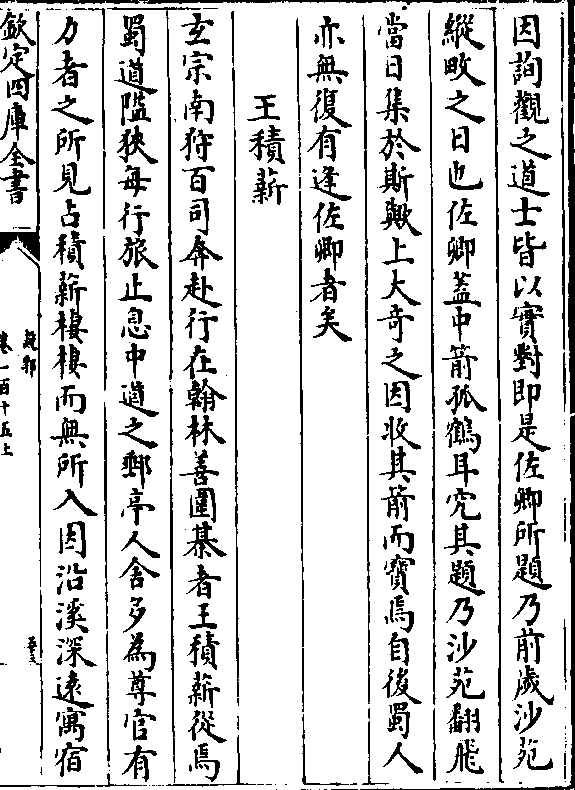 因詢觀之道士皆以實對即是佐卿所題乃前歲沙苑
縱畋之日也佐卿葢中箭孤鶴耳究其題乃沙苑翻飛
當日集於斯歟上大奇之因收其箭而寶焉自後蜀人
亦無復有逢佐卿者矣
王積薪
玄宗南狩百司奔赴行在翰林善圍棊者王積薪從焉
蜀道隘狹每行旅止息中道之郵亭人舍多為尊官有
力者之所見占積薪棲棲而無所入因沿溪深遠寓宿
欽定四庫全書
說郛
卷一百十五上